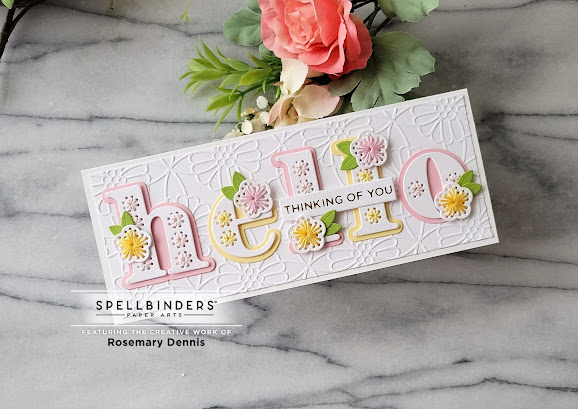 hello
THINKING OF YOU
SPELLBINDERS®
PAPER ARTS
FEATURING THE CREATIVE WORK OF
Rosemary Dennis